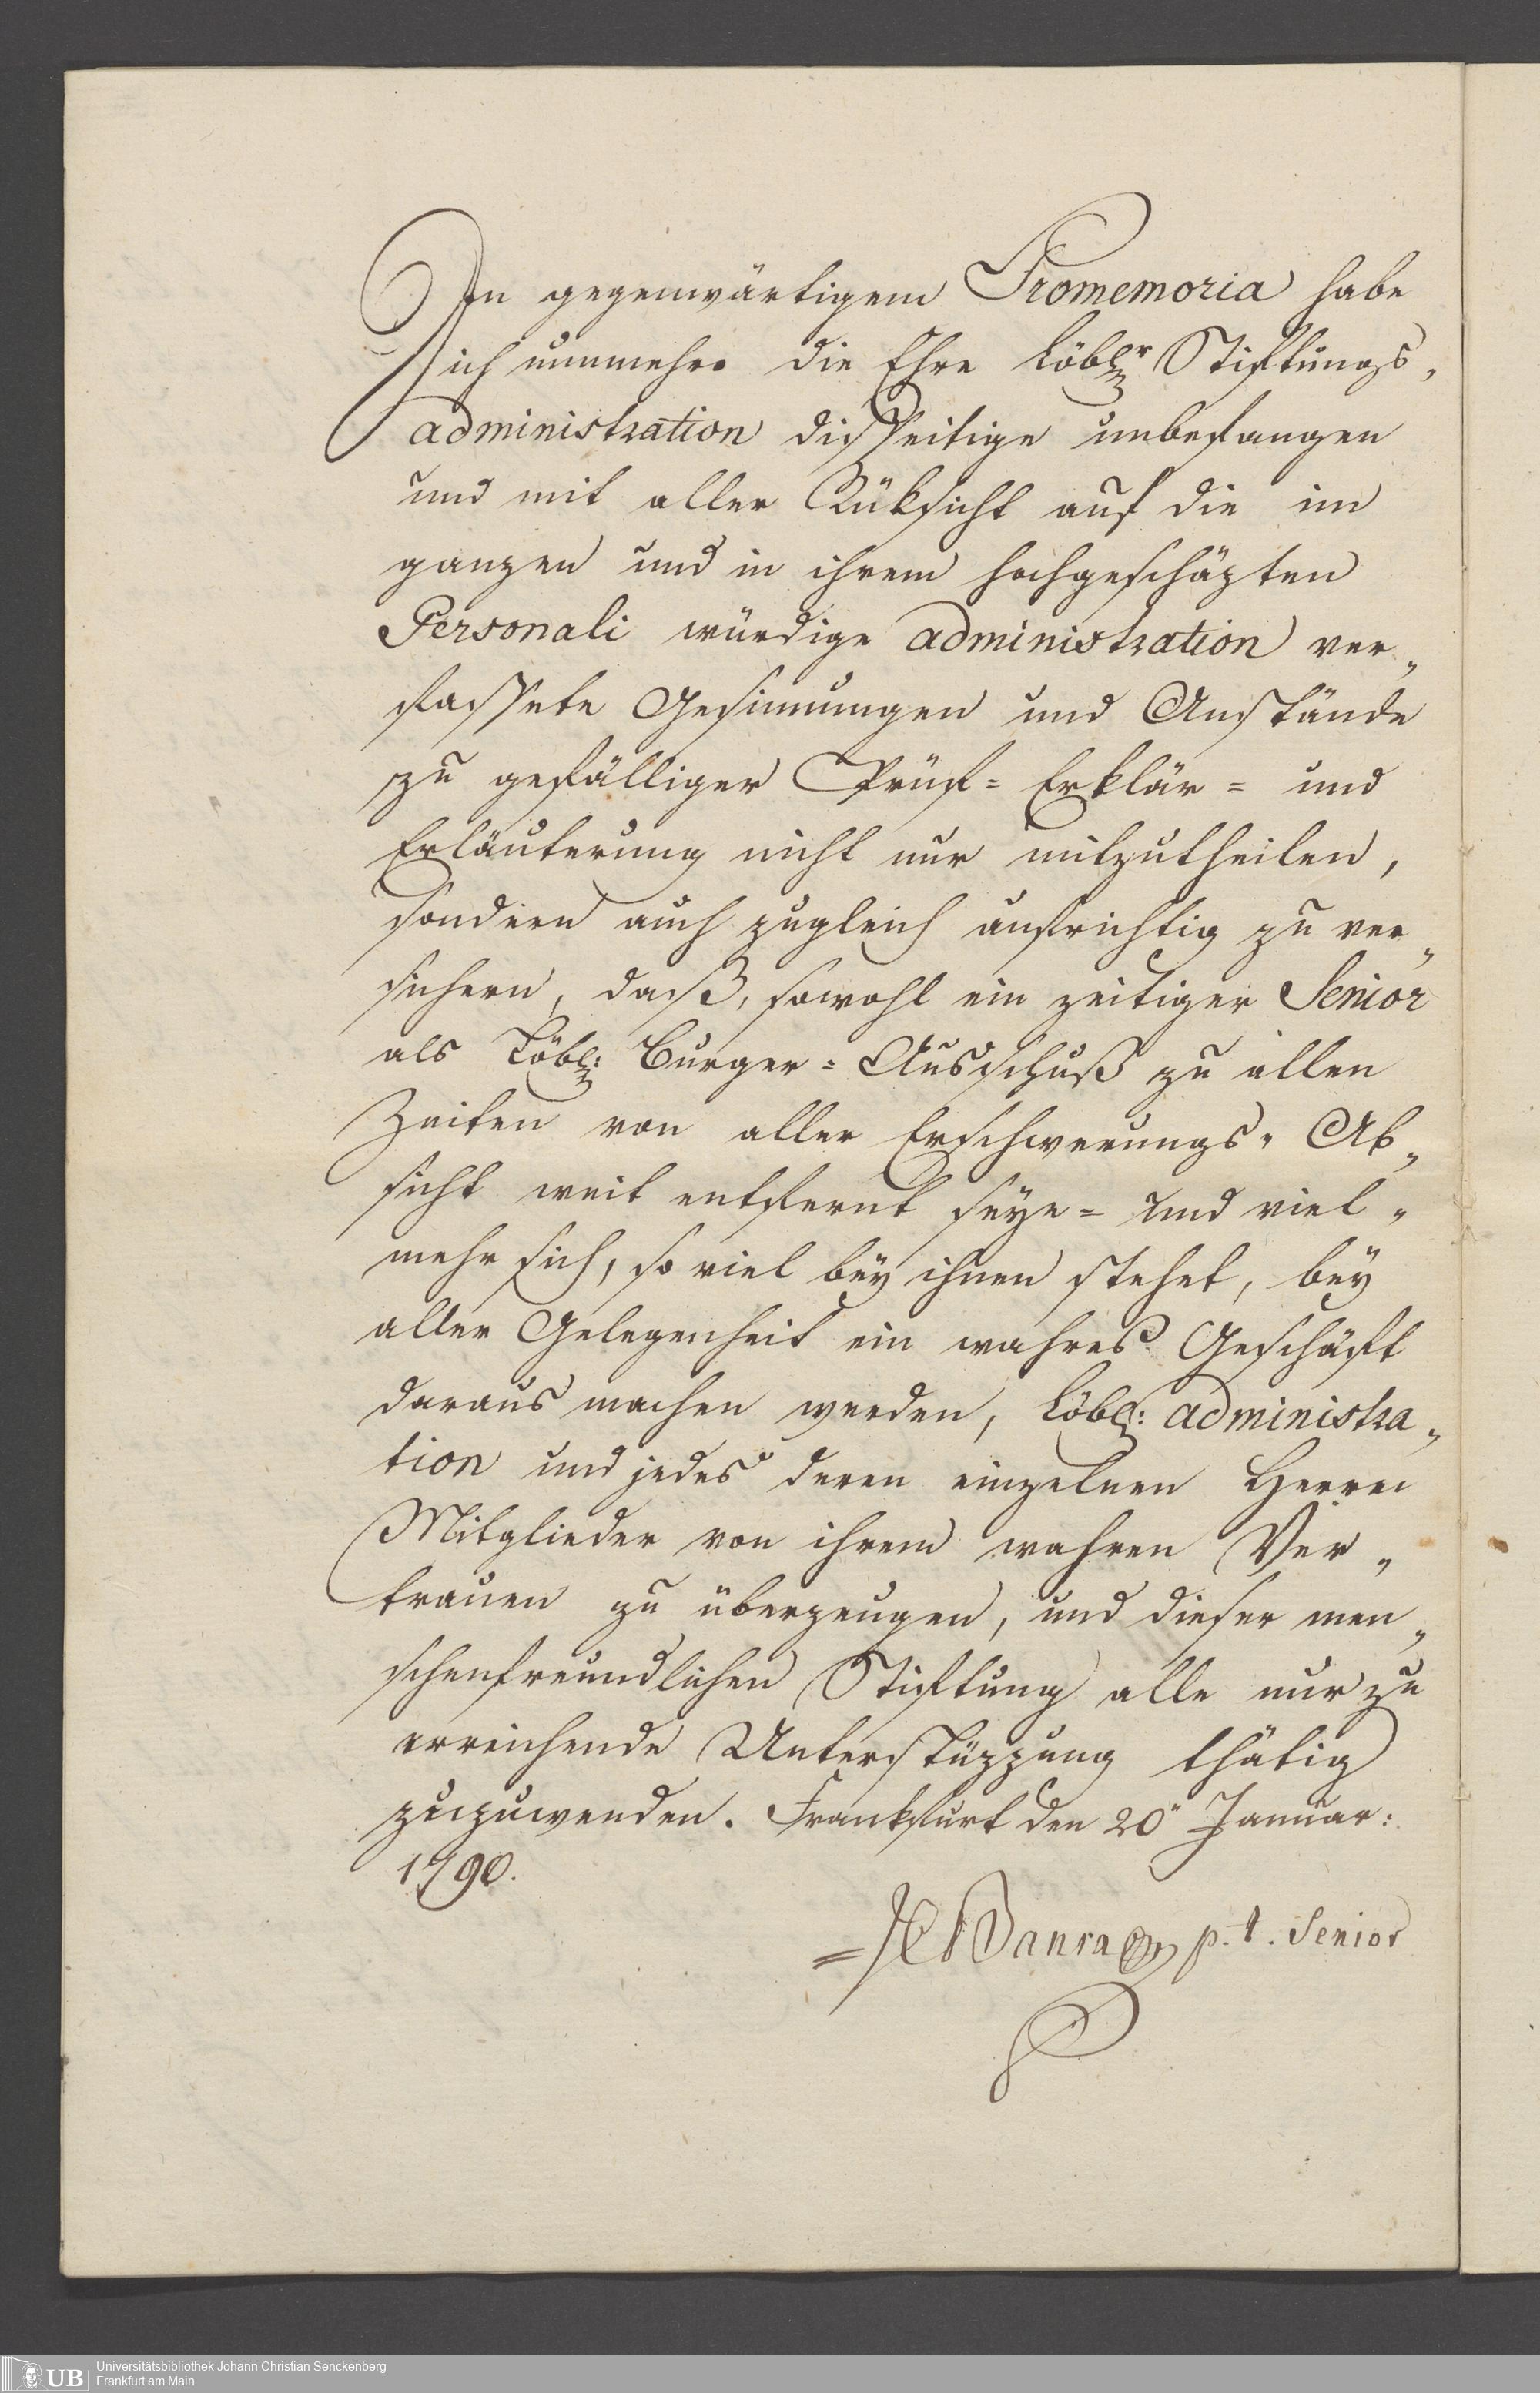 In gegenwärtigem Promemoria habe
ich nunmehro die Ehre Löblr Stiftungs„
administration disseitige unbefangen
und mit aller Rüksicht auf die im
ganzen und in ihrem hochgeschäzten
Personali würdige administration ver„
fassete Gesinnungen und Anstände
zu gefälliger Prüf= Erklär= und
Erläuterung nicht nur mitzutheilen,
sondern auch zugleich aufrichtig zu ver„
sichern, daß, sowohl ein zeitiger Senior
als Löbl: Burger=Ausschuß zu allen
Zeiten von aller Erschwerungs„ Ab„
sicht weit entfernt seye= und viel„
mehr sich, so viel bey ihnen stehet, bey
aller Gelegenheit ein wahres Geschäft
daraus machen werden, Löbl: administra„
tion und jedes deren einzelnen Herren
Mitglieder von ihrem wahren Ver„
trauen zu überzeugen, und dieser men„
schenfreundlichen Stiftung alle nur zu
erreichende Unterstüzzung thätig
zuzuwenden. Frankfurt den 20" Januar:
1790.
p. t. Senior
UB
Universitätsbibliothek Johann Christian Senckenberg
Frankfurt am Main